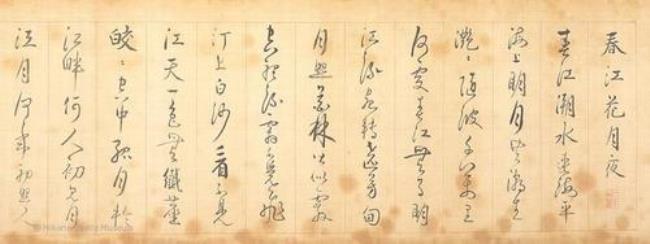 春江花月夜
春江潮水連海平
海上明月共潮生
灔〻隨波千萬里
何處春江無月明
江流宛轉遶芳甸
月照花林皆似霰
空裏流霜不覺飛
汀上白沙看不見
江天一色無纖塵
皎〻空中孤月輪
江畔何人初見月
江月何年初照人
Museum